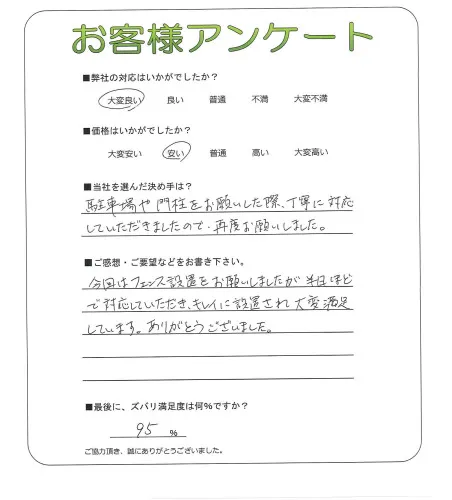 お客様アンケート
■弊社の対応はいかがでしたか?
大変良い 良い 普通 不満 大変不満
■価格はいかがでしたか?
大変安い 安い 普通 高い 大変高い
■当社を選んだ決め手は?
駐車場や門柱をお願いした際、丁寧に対応
していただきましたので、再度お願いしました。
■ご感想・ご要望などをお書き下さい。
今回はフェンス設置をお願いしましたが半日ほど
で対応していただき、キレイに設置され大変満足
しています。ありがとうございました。
■最後に、ズバリ満足度は何%ですか?
95 %
ご協力頂き、誠にありがとうございました。